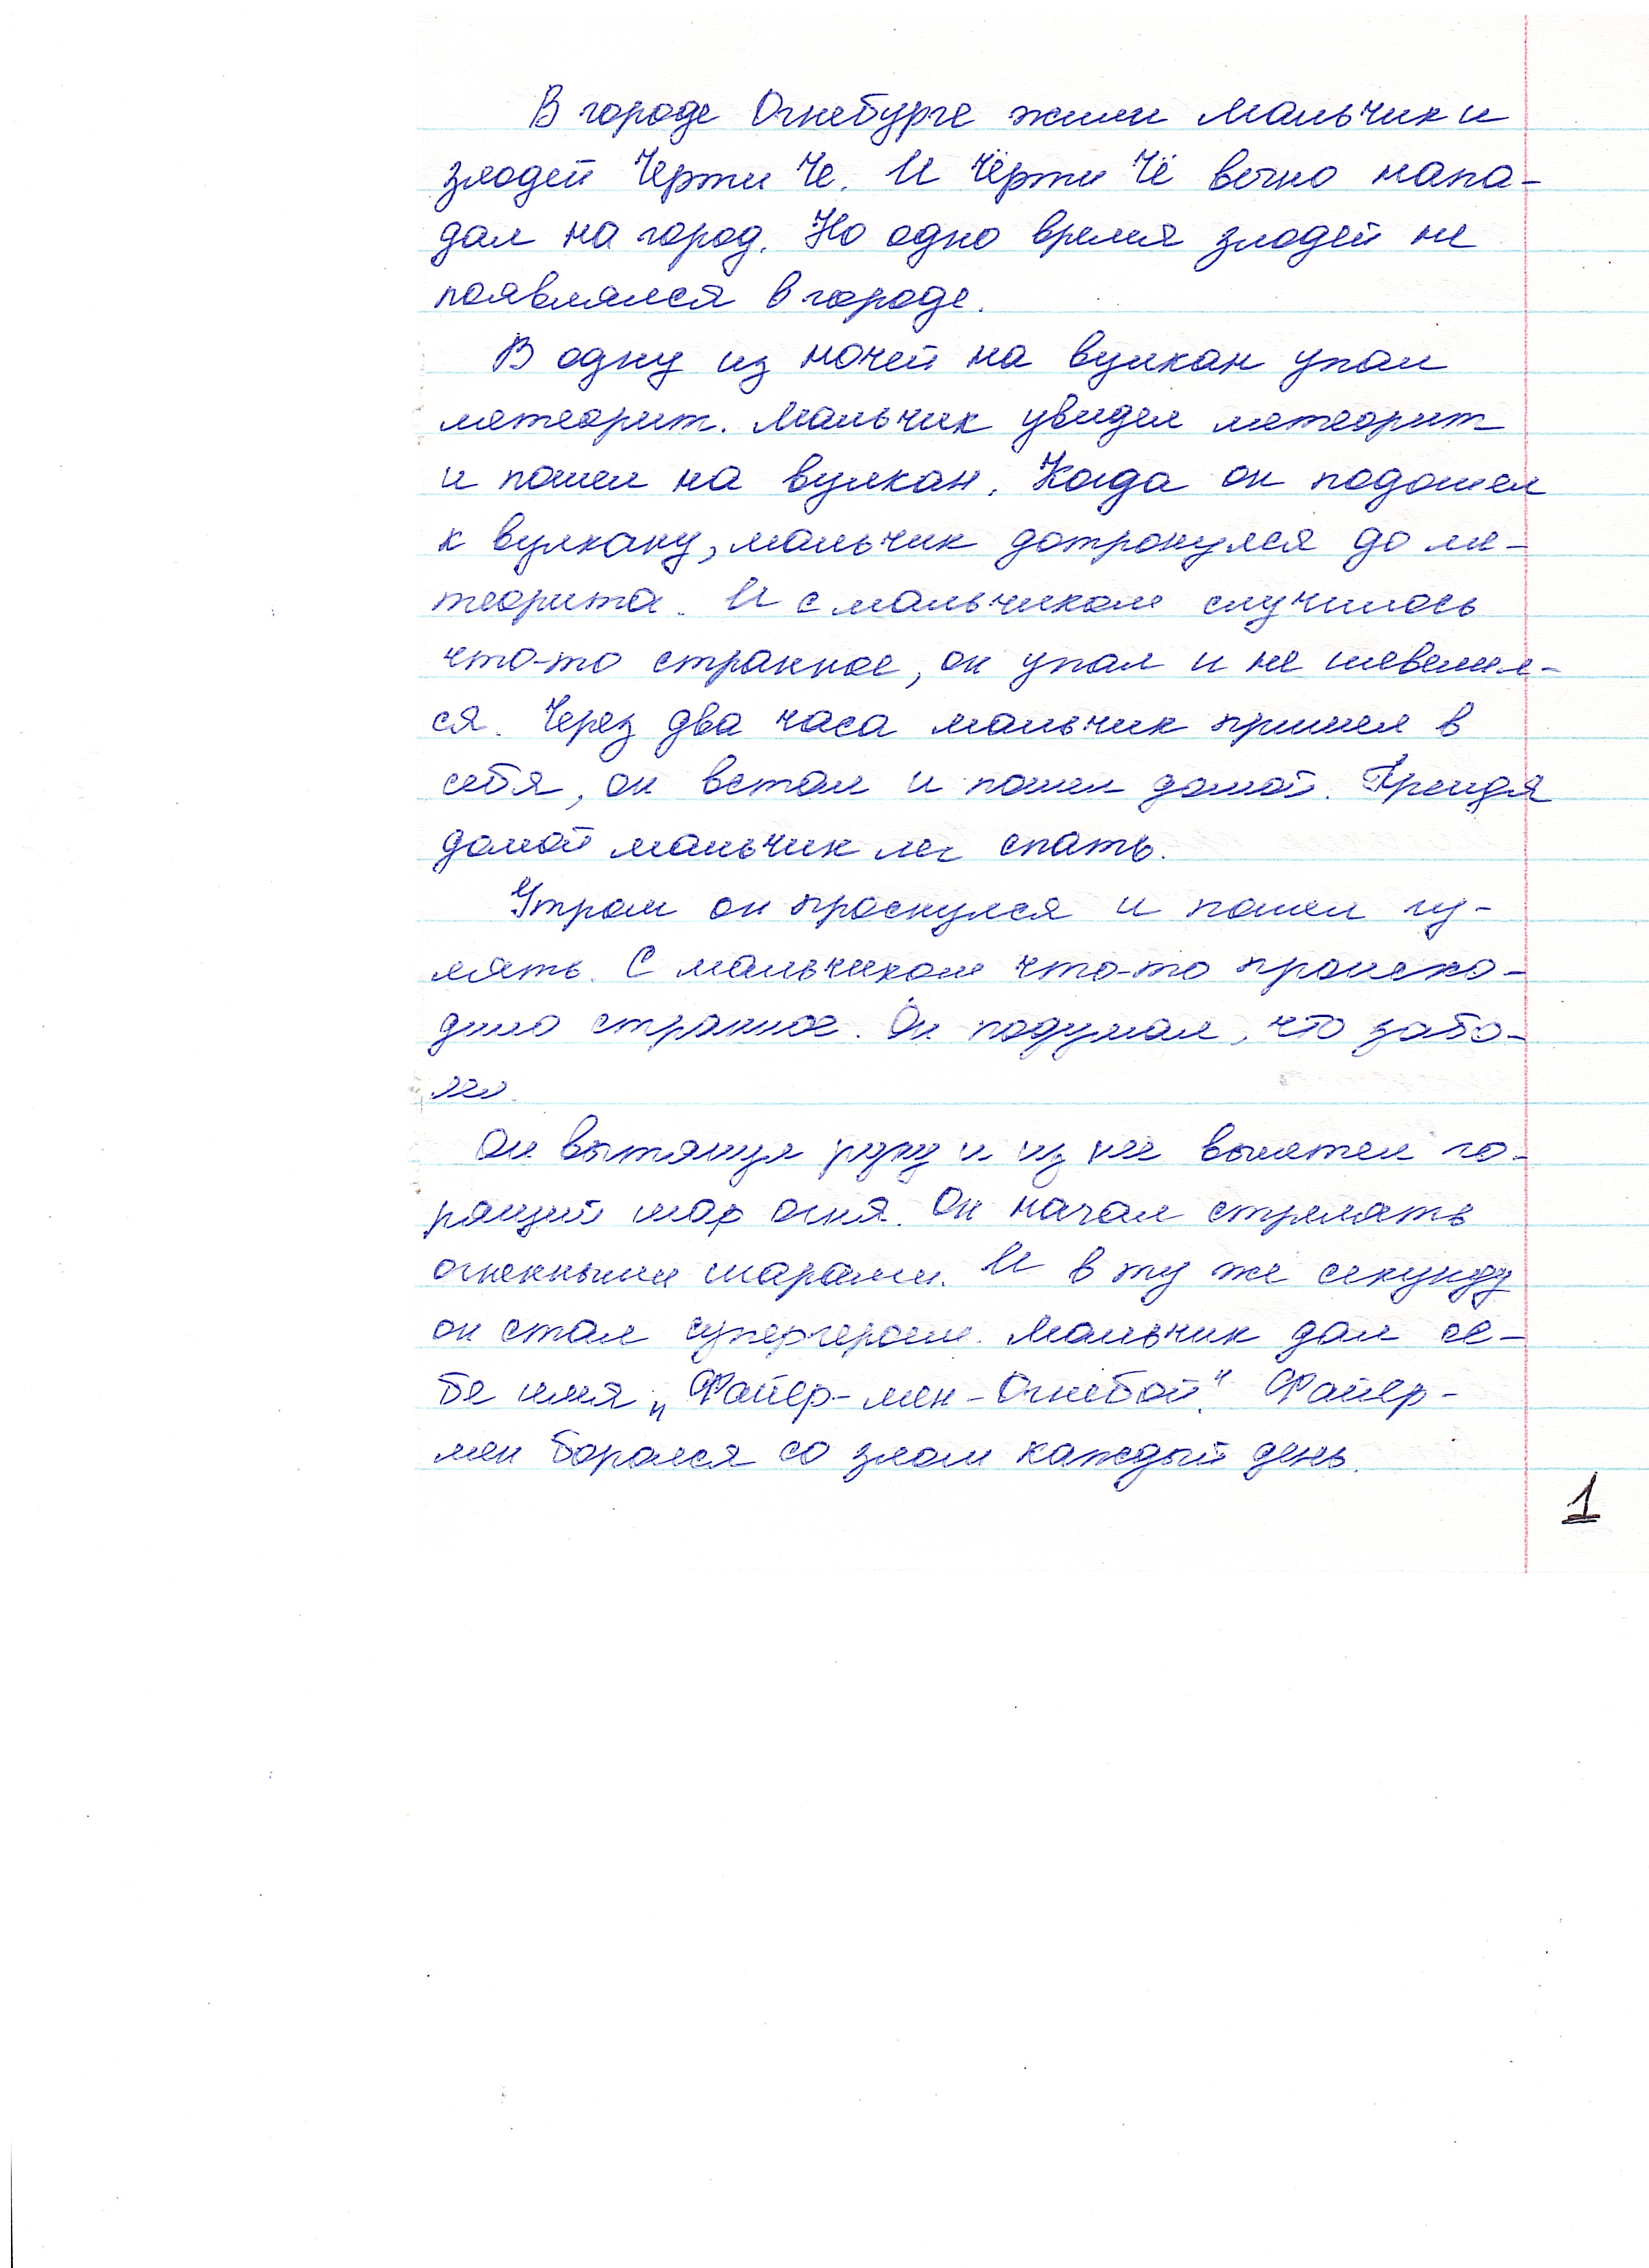 В городе Огнебурге жили мальчик и
злодей Черти Че. И Чёрти Чё вечно напа-
дал на город. Но одно время злодей не
появлялся в городе.
В одну из ночей на вулкан упал
метеорит. Мальчик увидел метеорит
и пошел на вулкан. Когда он подошел
к вулкану, мальчик дотронулся до ме-
теорита. И с мальчиком случилось
что-то странное, он упал и не шевелил-
ся. Через два часа мальчик пришел в
себя, он встал и пошел домой. Прейдя
домой мальчик лег спать.
Утром он проснулся и пошел гу-
лять. С мальчиком что-то происхо-
дило странное. Он подумал, что забо-
лел.
Он вытянул руку и из нее вылетел го-
рящий шар огня. Он начал стрелять
огненными шарами. И в ту же секунду
он стал супергероем. Мальчик дал се-
бе имя „Файер-мен-Огнебой". Файер-
мен боролся со злом каждый день.
1